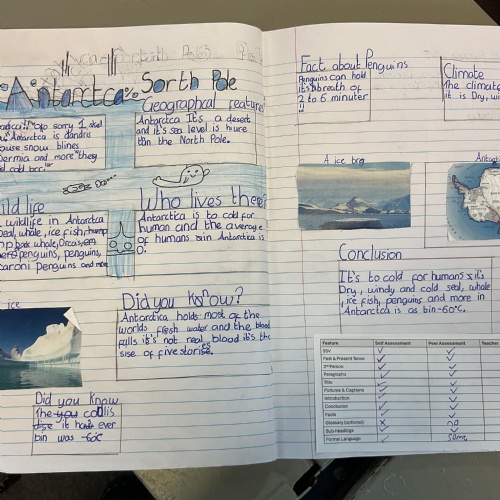 Antarctca
Sorth Pole
Geographcal features
Antarctca It's a desert
and it's sea level is hiure
than the North Pole.
sorry 1
Antarctca is
snow blines
and more they
cold
Who lives there?
Antarctca is to cold for
human and the average
of humans in Antarctca is
0.
life
wildlife in Antarctca
whale, ice fish,
whale, Orcas,
penguins, penguins,
penguins and more
Did you know?
Antarctca holds most of the
worlds fresh water and the blood
falls it's not real blood it's the
sise of five stories.
ice
Did you Know
The coldis
it ever
bin was -60c
Fact about Penguins
Penguins can hold
it's breath of
2 to 6 minuter
!!
Climate
The climate
it is Dry, wi
A ice brg
Antarct
Conclusion
It's to cold for humans & it's
Dry, windy and cold seal, whale
, ice fish, penguins and more in
Antarctca is as bin -60°C.
Feature Self Assessment Peer Assessment Teacher
SSV
Past & Present Tense
3rd Person
Paragraphs
Title
Pictures & Captions
Introduction
Conclusion
Facts
Glossary (optional) no
Sub-headings
Formal Language some